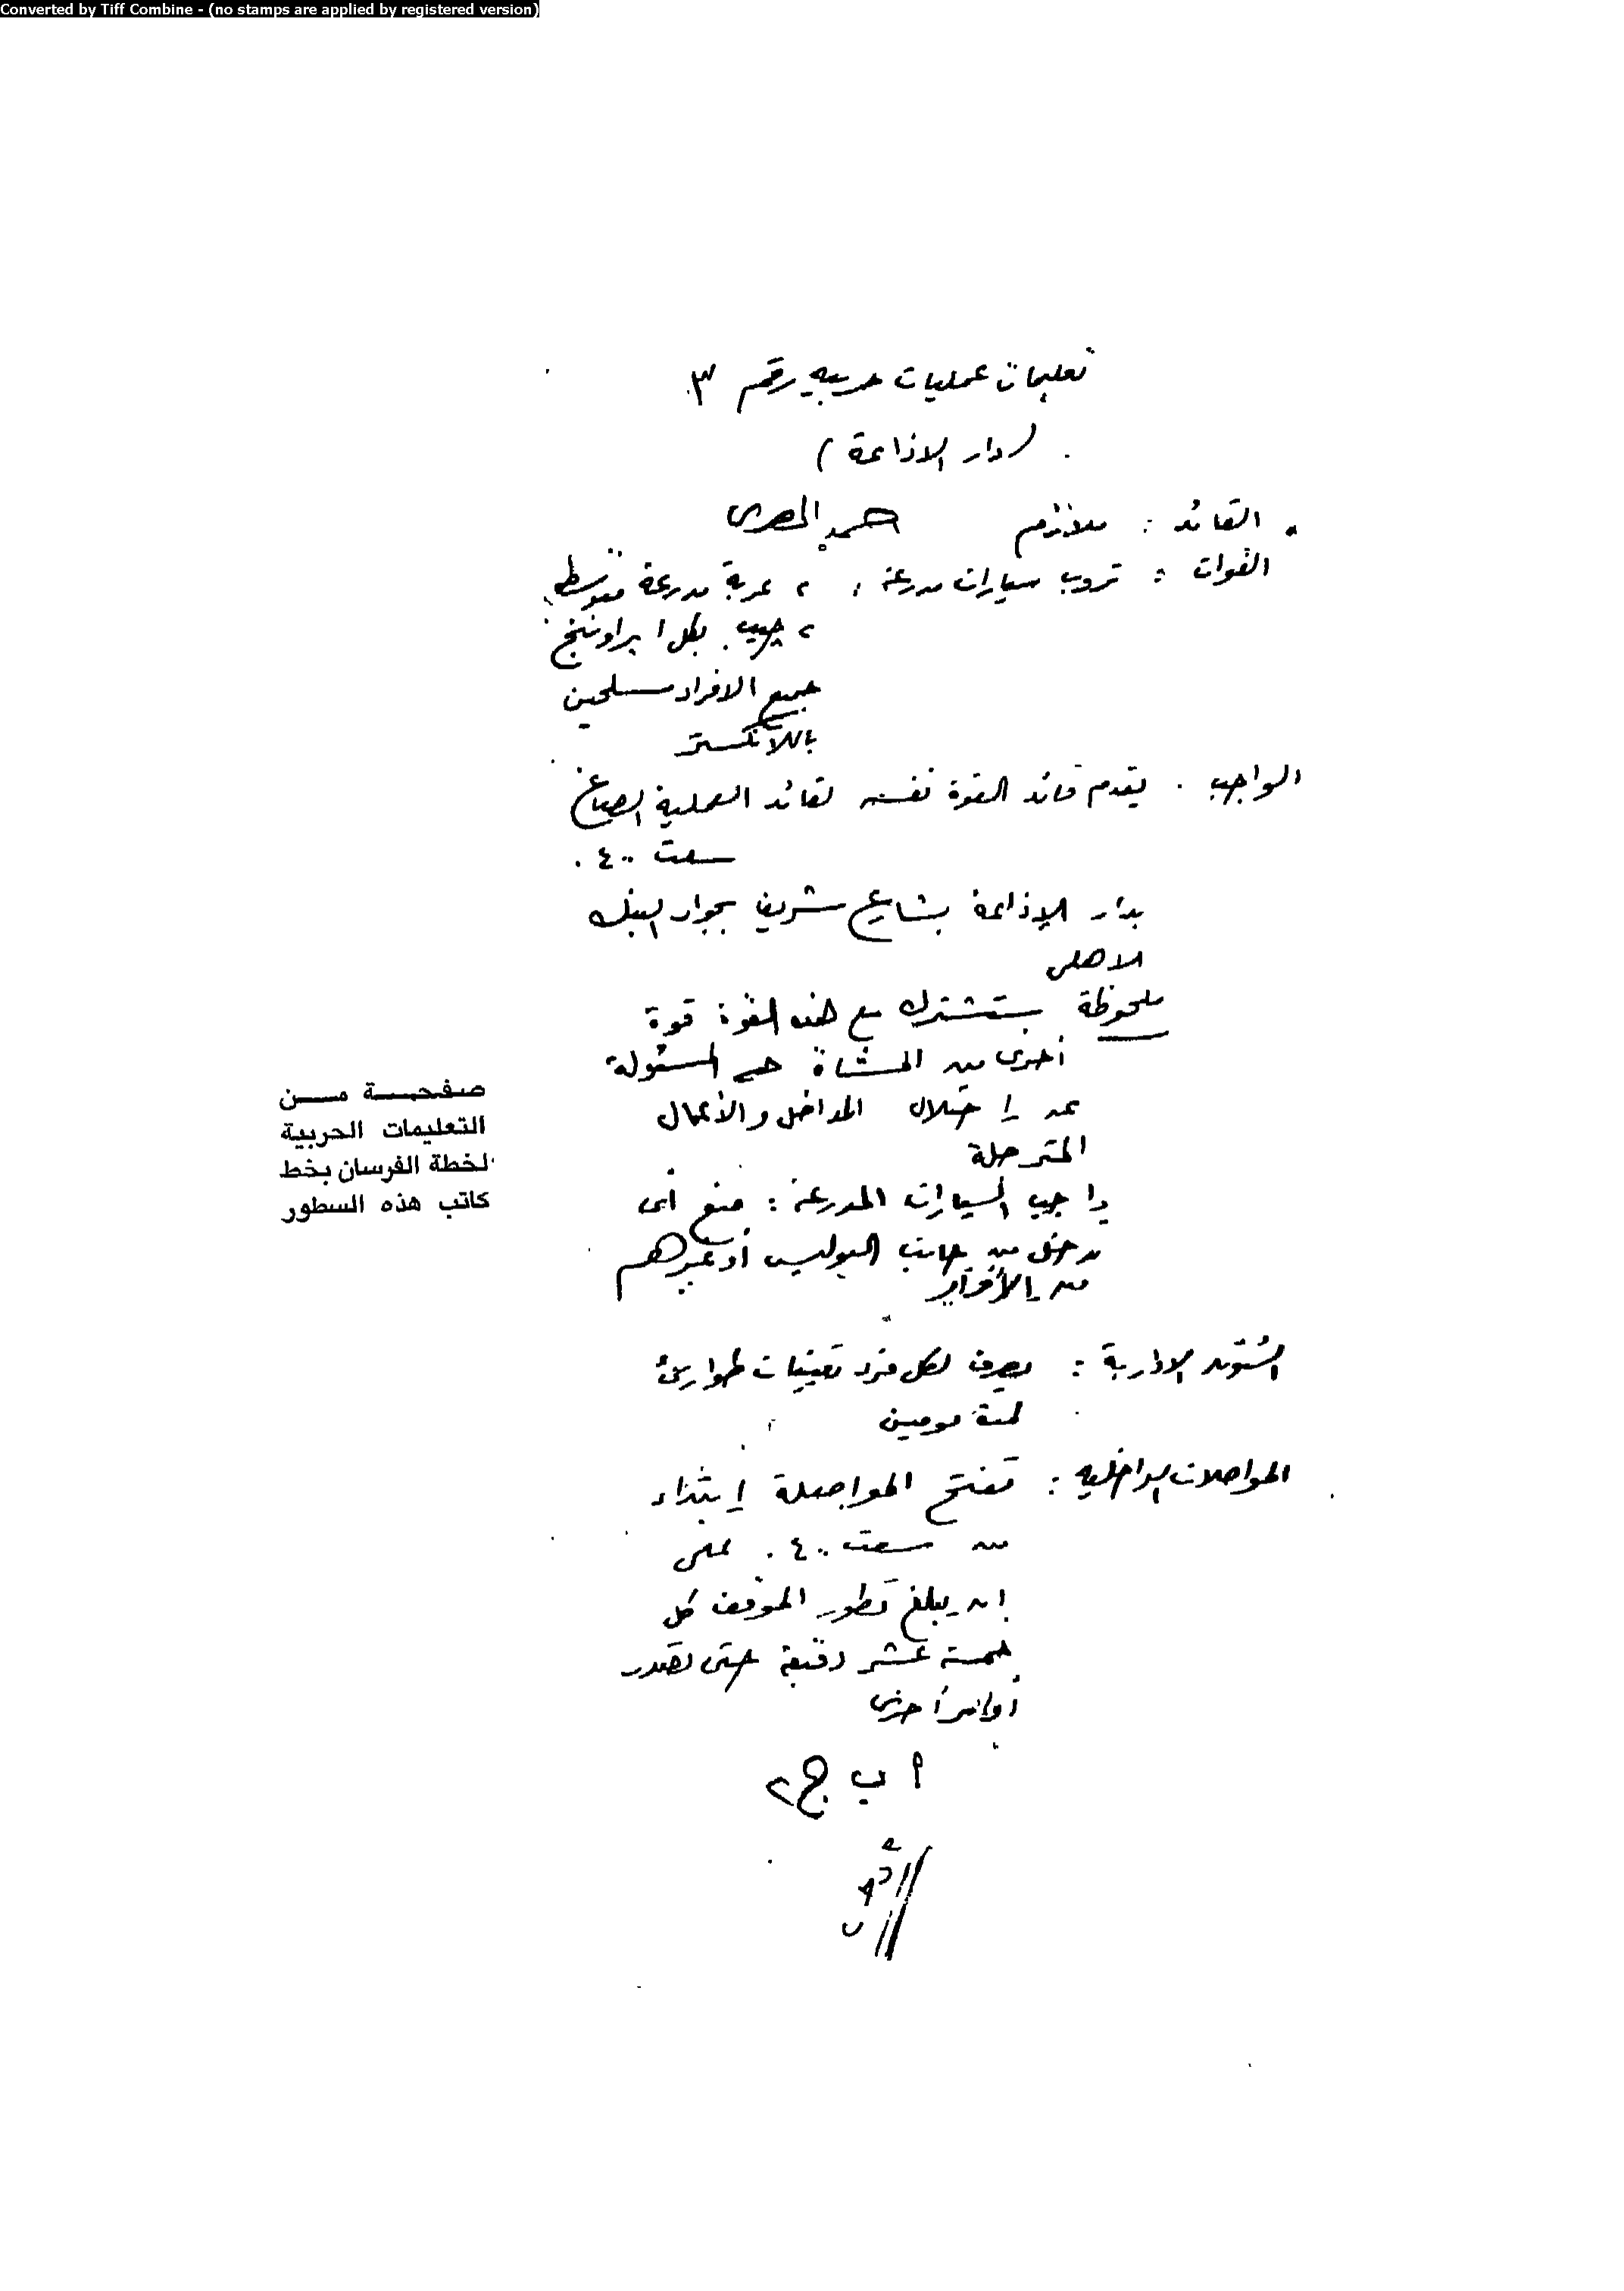 Converted by Tiff Combine - (no stamps are applied by registered version)
تعليمات عمليات حربيه رقم ٣
(دار الاذاعة)
القائد : ملازم أحمد المصرى
القوات : تروب سيارات مدرعة ، ٢ عربة مدرعة متوسطه
٢ جيب بكل ١ براوننج
جميع الافراد مسلحين
باللانكستر
الواجب . يقدم قائد القوة نفسه لقائد العملية الصاغ
سعت ٠٤٠٠
بدار الإذاعة بشارع شريف بجوار البنك
الاهلى
ملحوظة ستشترك مع هذه القوة قوة
أخرى من المشاة هى المسئولة
عن إحتلال المداخل والأعمال
المترجلة
واجب السيارات المدرعة : منع أى
تدخل من جانب البوليس أو غيرهم
من الأفراد
الشئون الادارية : يصرف لكل فرد تعيينات طوارئ
لمدة يومين
المواصلات الداخليه : تفتح المواصلة إبتداء
من سعت ٠٤٠٠ على
ان يبلغ تطور الموقف كل
خمسة عشر دقيقة حتى تصدر
أوامر أخرى
ا ب ج ٢
صفحة من
التعليمات الحربية
لخطة الفرسان بخط
كاتب هذه السطور